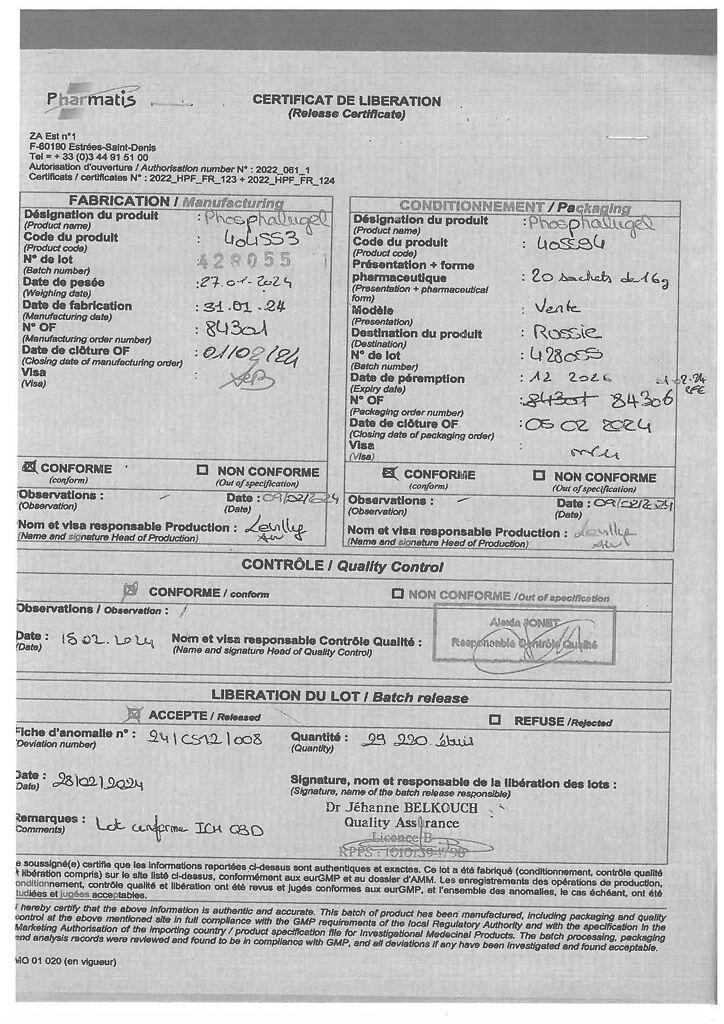 Pharmatis
CERTIFICAT DE LIBERATION
(Release Certificate)
ZA Est n°1
F-60190 Estrées-Saint-Denis
Tel = + 33 (0)3 44 91 51 00
Autorisation d'ouverture / Authorisation number N° : 2022_061_1
Certificats / certificates N° : 2022_HPF_FR_123 + 2022_HPF_FR_124
FABRICATION / Manufacturing
Désignation du produit : Phosphalugel
(Product name)
Code du produit : 404553
(Product code)
N° de lot 428055
(Batch number)
Date de pesée : 27.01.2024
(Weighing date)
Date de fabrication : 31.01.24
(Manufacturing date)
N° OF : 84301
(Manufacturing order number)
Date de clôture OF : 01/02/24
(Closing date of manufacturing order)
Visa
(Visa)
CONFORME
(conform)
NON CONFORME
(Out of specification)
Observations :
(Observation)
Date : 09/02/2024
(Date)
Nom et visa responsable Production :
(Name and signature Head of Production)
CONDITIONNEMENT / Packaging
Désignation du produit : Phosphalugel
(Product name)
Code du produit : 405594
(Product code)
Présentation + forme
pharmaceutique : 20 sachets de 16g
(Presentation + pharmaceutical
form)
Modèle : Vente
(Presentation)
Destination du produit : Russie
(Destination)
N° de lot : 428055
(Batch number)
Date de péremption : 12 2026
(Expiry date)
N° OF : 84301 84306
(Packaging order number)
Date de clôture OF : 05 02 2024
(Closing date of packaging order)
Visa
(Visa)
CONFORME
(conform)
NON CONFORME
(Out of specification)
Observations :
(Observation)
Date : 09/02/2024
(Date)
Nom et visa responsable Production :
(Name and signature Head of Production)
CONTRÔLE / Quality Control
CONFORME / conform
NON CONFORME /Out of specification
Observations / Observation : /
Date : 15.02.2024
(Date)
Nom et visa responsable Contrôle Qualité :
(Name and signature Head of Quality Control)
Responsable Contrôle Qualité
LIBERATION DU LOT / Batch release
ACCEPTE / Released
REFUSE /Rejected
Fiche d'anomalie n° : 24/CS12/008
Deviation number)
Quantité : 29 220 étuis
(Quantity)
Date : 28/02/2024
Date)
Signature, nom et responsable de la libération des lots :
(Signature, name of the batch release responsible)
Dr Jéhanne BELKOUCH
Quality Assurance
Licence B
Remarques : Lot conforme ICH Q3D
Comments)
e soussigné(e) certifie que les informations reportées ci-dessus sont authentiques et exactes. Ce lot a été fabriqué (conditionnement, contrôle qualité
libération compris) sur le site listé ci-dessus, conformément aux eurGMP et au dossier d'AMM. Les enregistrements des opérations de production,
onditionnement, contrôle qualité et libération ont été revus et jugés conformes aux eurGMP, et l'ensemble des anomalies, le cas échéant, ont été
tudiées et jugées acceptables.
hereby certify that the above information is authentic and accurate. This batch of product has been manufactured, including packaging and quality
ontrol at the above mentioned site in full compliance with the GMP requirements of the local Regulatory Authority and with the specification in the
Marketing Authorisation of the importing country / product specification file for Investigational Medecinal Products. The batch processing, packaging
nd analysis records were reviewed and found to be in compliance with GMP, and all deviations if any have been investigated and found acceptable.
MO 01 020 (en vigueur)